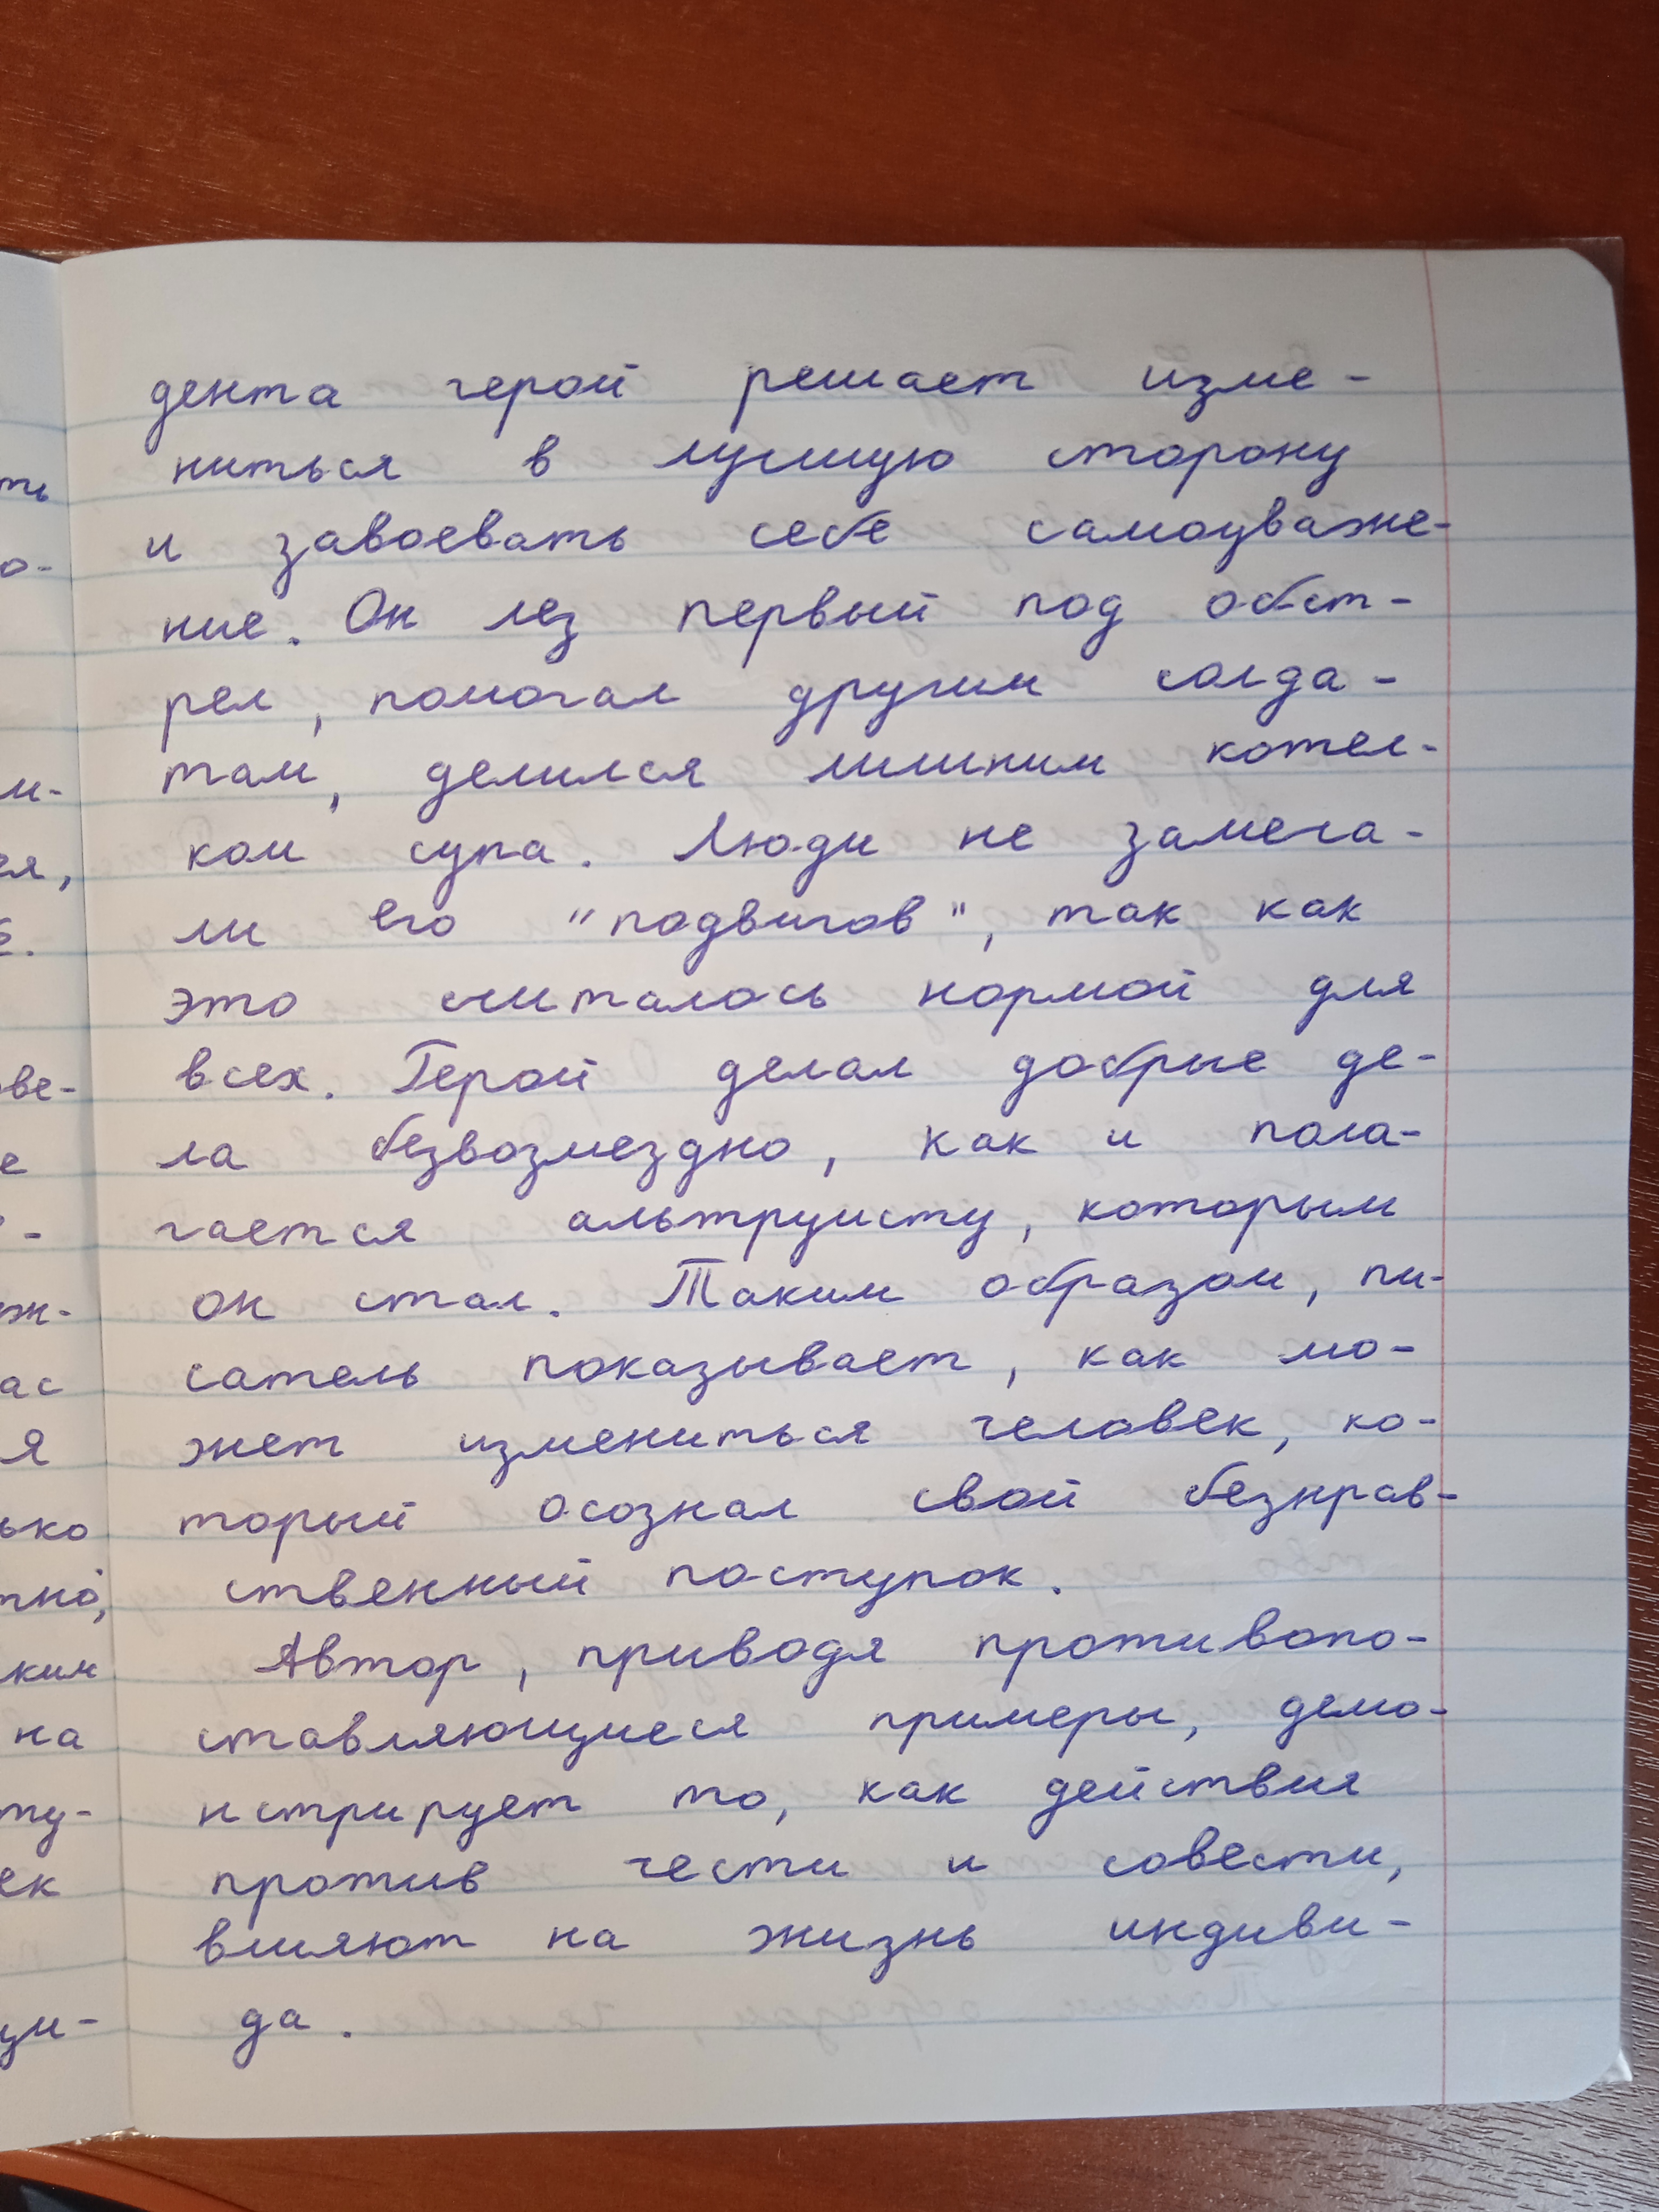 дента герой решает изме-
ниться в лучшую сторону
и завоевать себе самоуваже-
ние. Он лез первый под обст-
рел, помогал другим солда-
там, делился лишним котел-
ком супа. Люди не замеча-
ли его "подвигов", так как
это считалось нормой для
всех. Герой делал добрые де-
ла безвозмездно, как и пола-
гается альтруисту, которым
он стал. Таким образом, пи-
сатель показывает, как мо-
жет измениться человек, ко-
торый осознал свой безнрав-
ственный поступок.
Автор, приводя противопо-
ставляющиеся примеры, демо-
нстрирует то, как действия
против чести и совести,
влияют на жизнь индиви-
да.